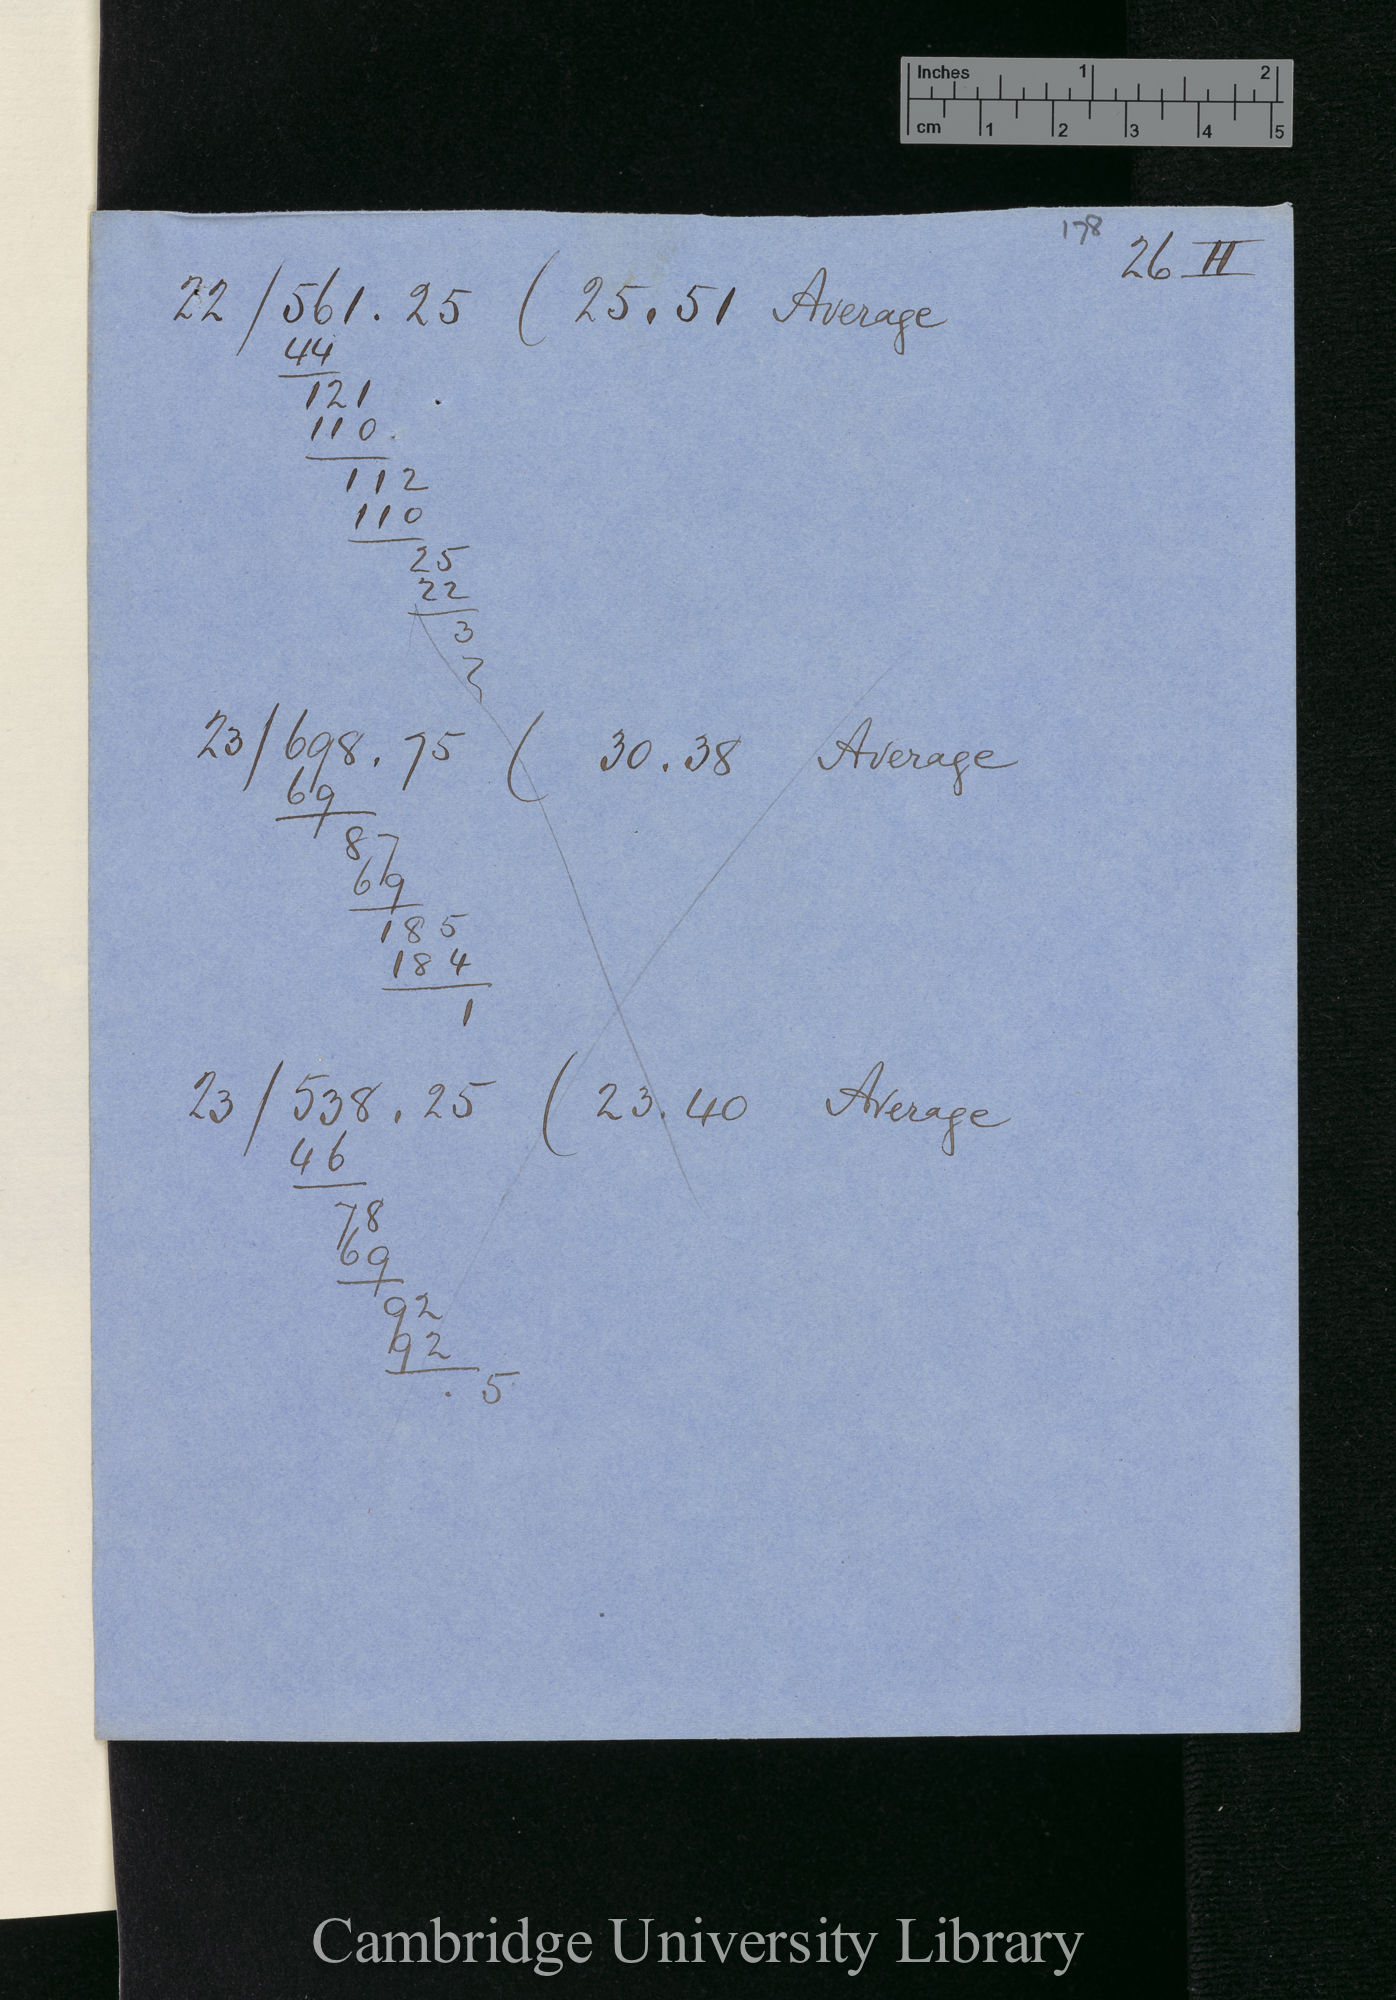 Inches 1 2
cm 1 2 3 4 5
178
26 II
22 / 561.25 ( 25.51 Average
44
121
110
112
110
25
22
3
2
23 / 698.75 ( 30.38 Average
69
87
69
185
184
1
23 / 538.25 ( 23.40 Average
46
78
69
92
92
. 5
Cambridge University Library